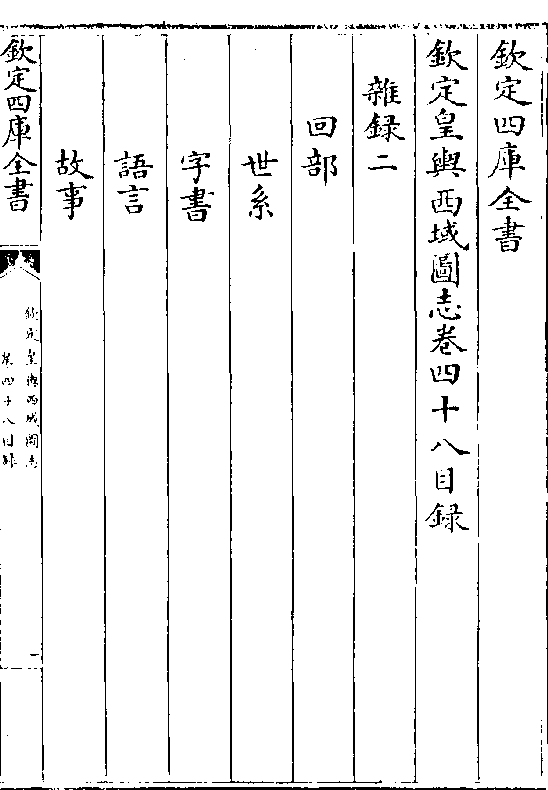 欽定四庫全書
欽定皇輿西域圖志卷四十八目録
雜録二
回部
世系
字書
語言
故事
欽定四庫全書
欽定皇輿西域圖志
卷四十八目録
一